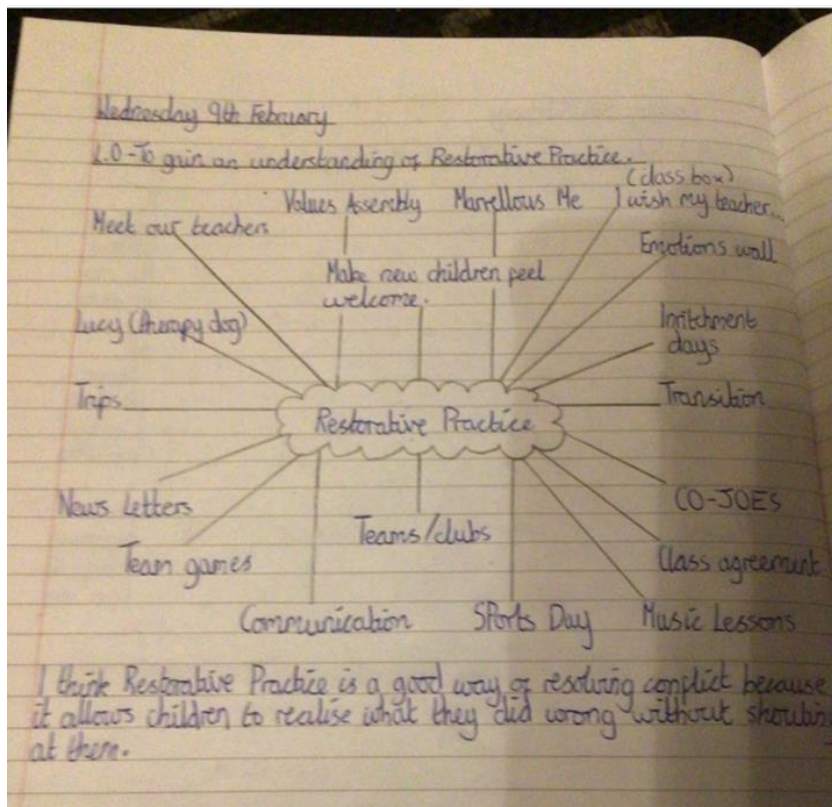 Wednesday 9th February
L.O-To gain an understanding of Restorative Practice.
(class box)
Values Assembly
Marvellous Me
I wish my teacher...
Meet our teachers
Emotions wall
Make new children feel
welcome.
Lucy (therapy dog)
Initchment
days
Trips
Restorative Practice
Transition
News Letters
CO-JOES
Teams/clubs
Team games
Class agreement
Communication
SPorts Day
Music Lessons
I think Restorative Practice is a good way of resolving conflict because
it allows children to realise what they did wrong without shouting
at them.